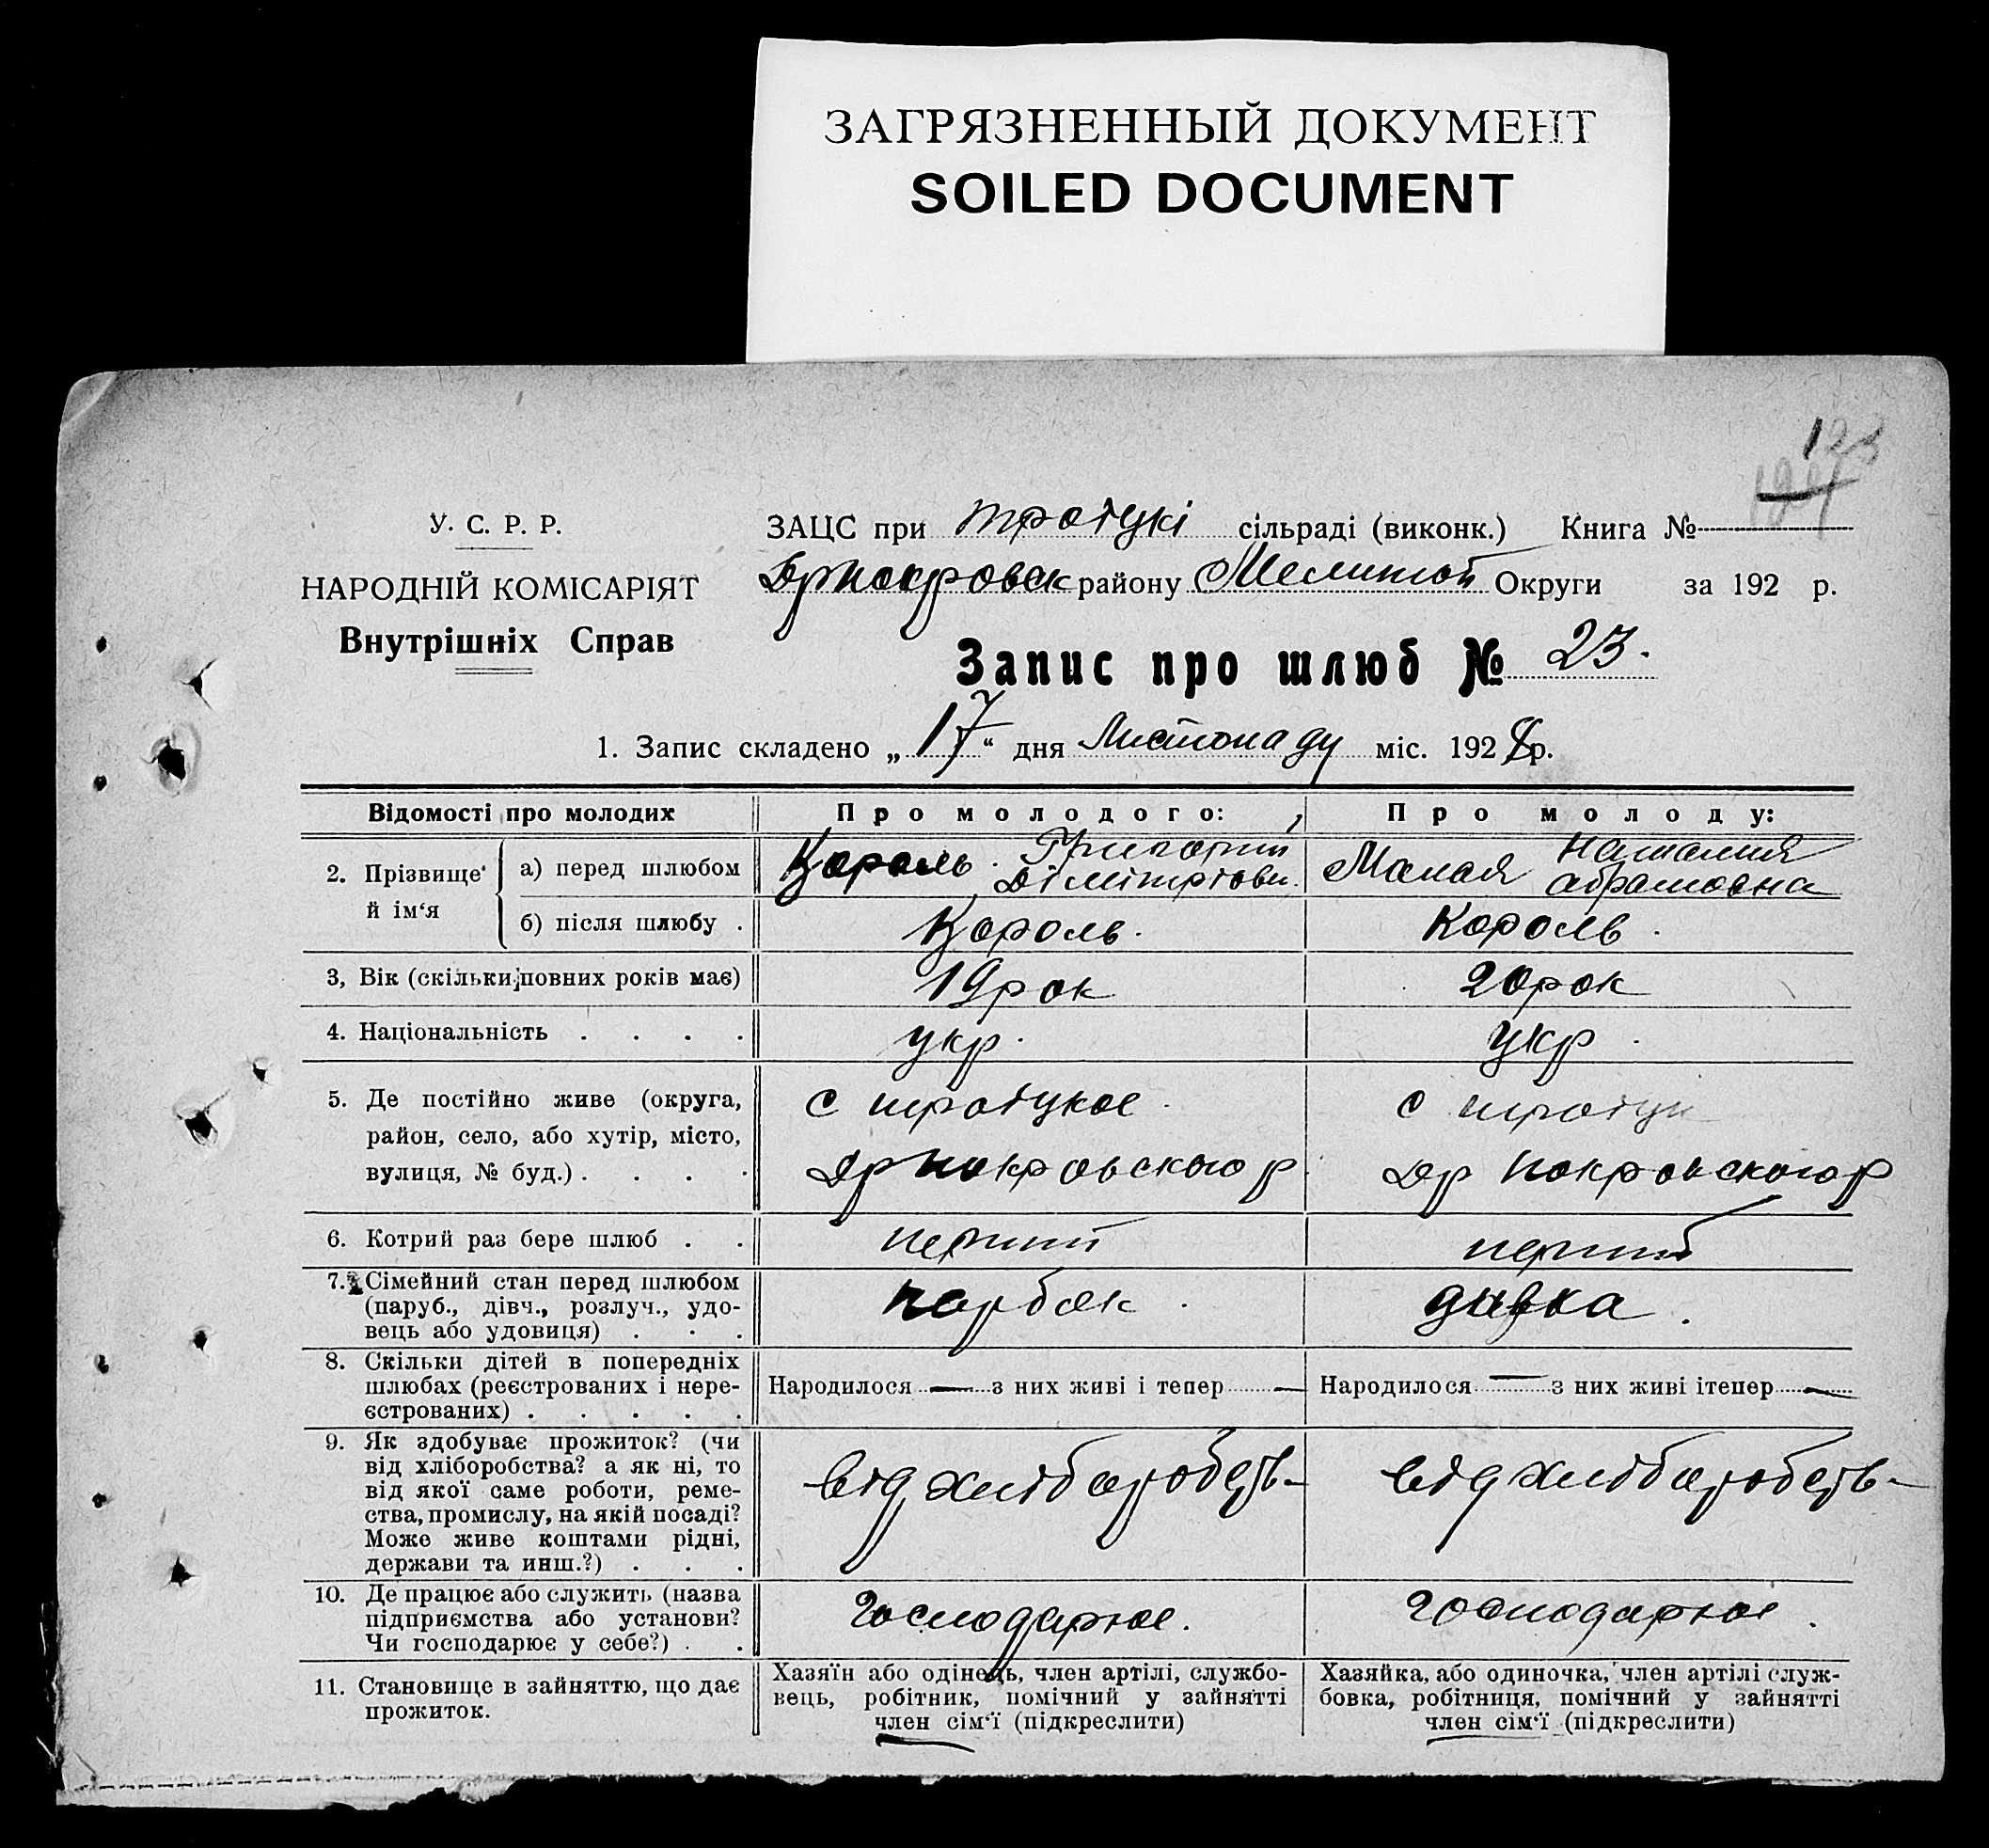 ЗАГРЯЗНЕННЫЙ ДОКУМЕНТ
SOILED DOCUMENT
123
У. С. Р. Р.
НАРОДНІЙ КОМІСАРІЯТ
Внутрішніх Справ
ЗАЦС при троіцкі сільраді (виконк.) Книга №
Дрпокровск району Мелитоп Округи за 192 р.
Запис про шлюб № 23.
1. Запис складено „17“ дня Листопаду міс. 1928 р.
Відомості про молодих
Про молодого:
Про молоду:
2. Прізвище й ім‘я
а) перед шлюбом
Король Григорий Дімітріови.
Малая Наталия абрамовна
б) після шлюбу .
Король.
Король.
3, Вік (скільки повних років має)
19 рок
20 рок
4. Національність . . . .
укр.
укр.
5. Де постійно живе (округа,
район, село, або хутір, місто,
вулиця, № буд.) . . . .
с троіцкое
Дрпокровского р
с троіцк
Др покровского р
6. Котрий раз бере шлюб . .
перший
перший
7. Сімейний стан перед шлюбом
(паруб., дівч., розлуч., удо-
вець або удовиця) . . .
парбок
дивка.
8. Скільки дітей в попередніх
шлюбах (реєстрованих і нере-
єстрованих) . . . . .
Народилося — з них живі і тепер —
Народилося — з них живі ітепер —
9. Як здобуває прожиток? (чи
від хліборобства? а як ні, то
від якої саме роботи, реме-
ства, промислу, на якій посаді?
Може живе коштами рідні,
держави та инш.?) . . .
від хліборобств-
від хліборобств-
10. Де працює або служить (назва
підприємства або установи?
Чи господарює у себе?) . .
господарює.
господарює.
11. Становище в зайняттю, що дає
прожиток.
Хазяїн або одінець, член артілі, службо-
вець, робітник, помічний у зайнятті
член сім‘ї (підкреслити)
Хазяйка, або одиночка, член артілі служ-
бовка, робітниця, помічний у зайнятті
член сім‘ї (підкреслити)